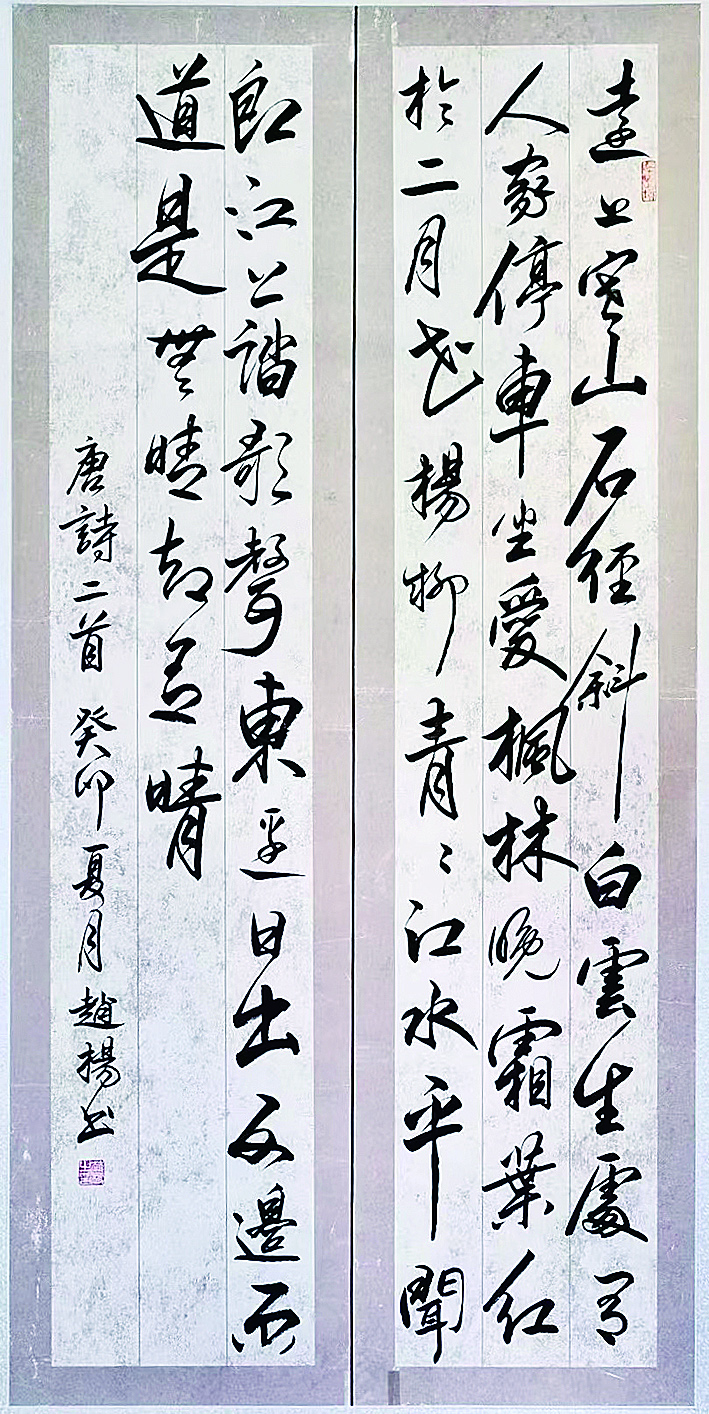 遠上寒山石徑斜白雲生處有
人家停車坐愛楓林晚霜葉紅
於二月花楊柳青〻江水平聞
郎江上踏歌聲東邊日出西邊雨
道是無晴却有晴
唐詩二首 癸卯夏月趙揚书